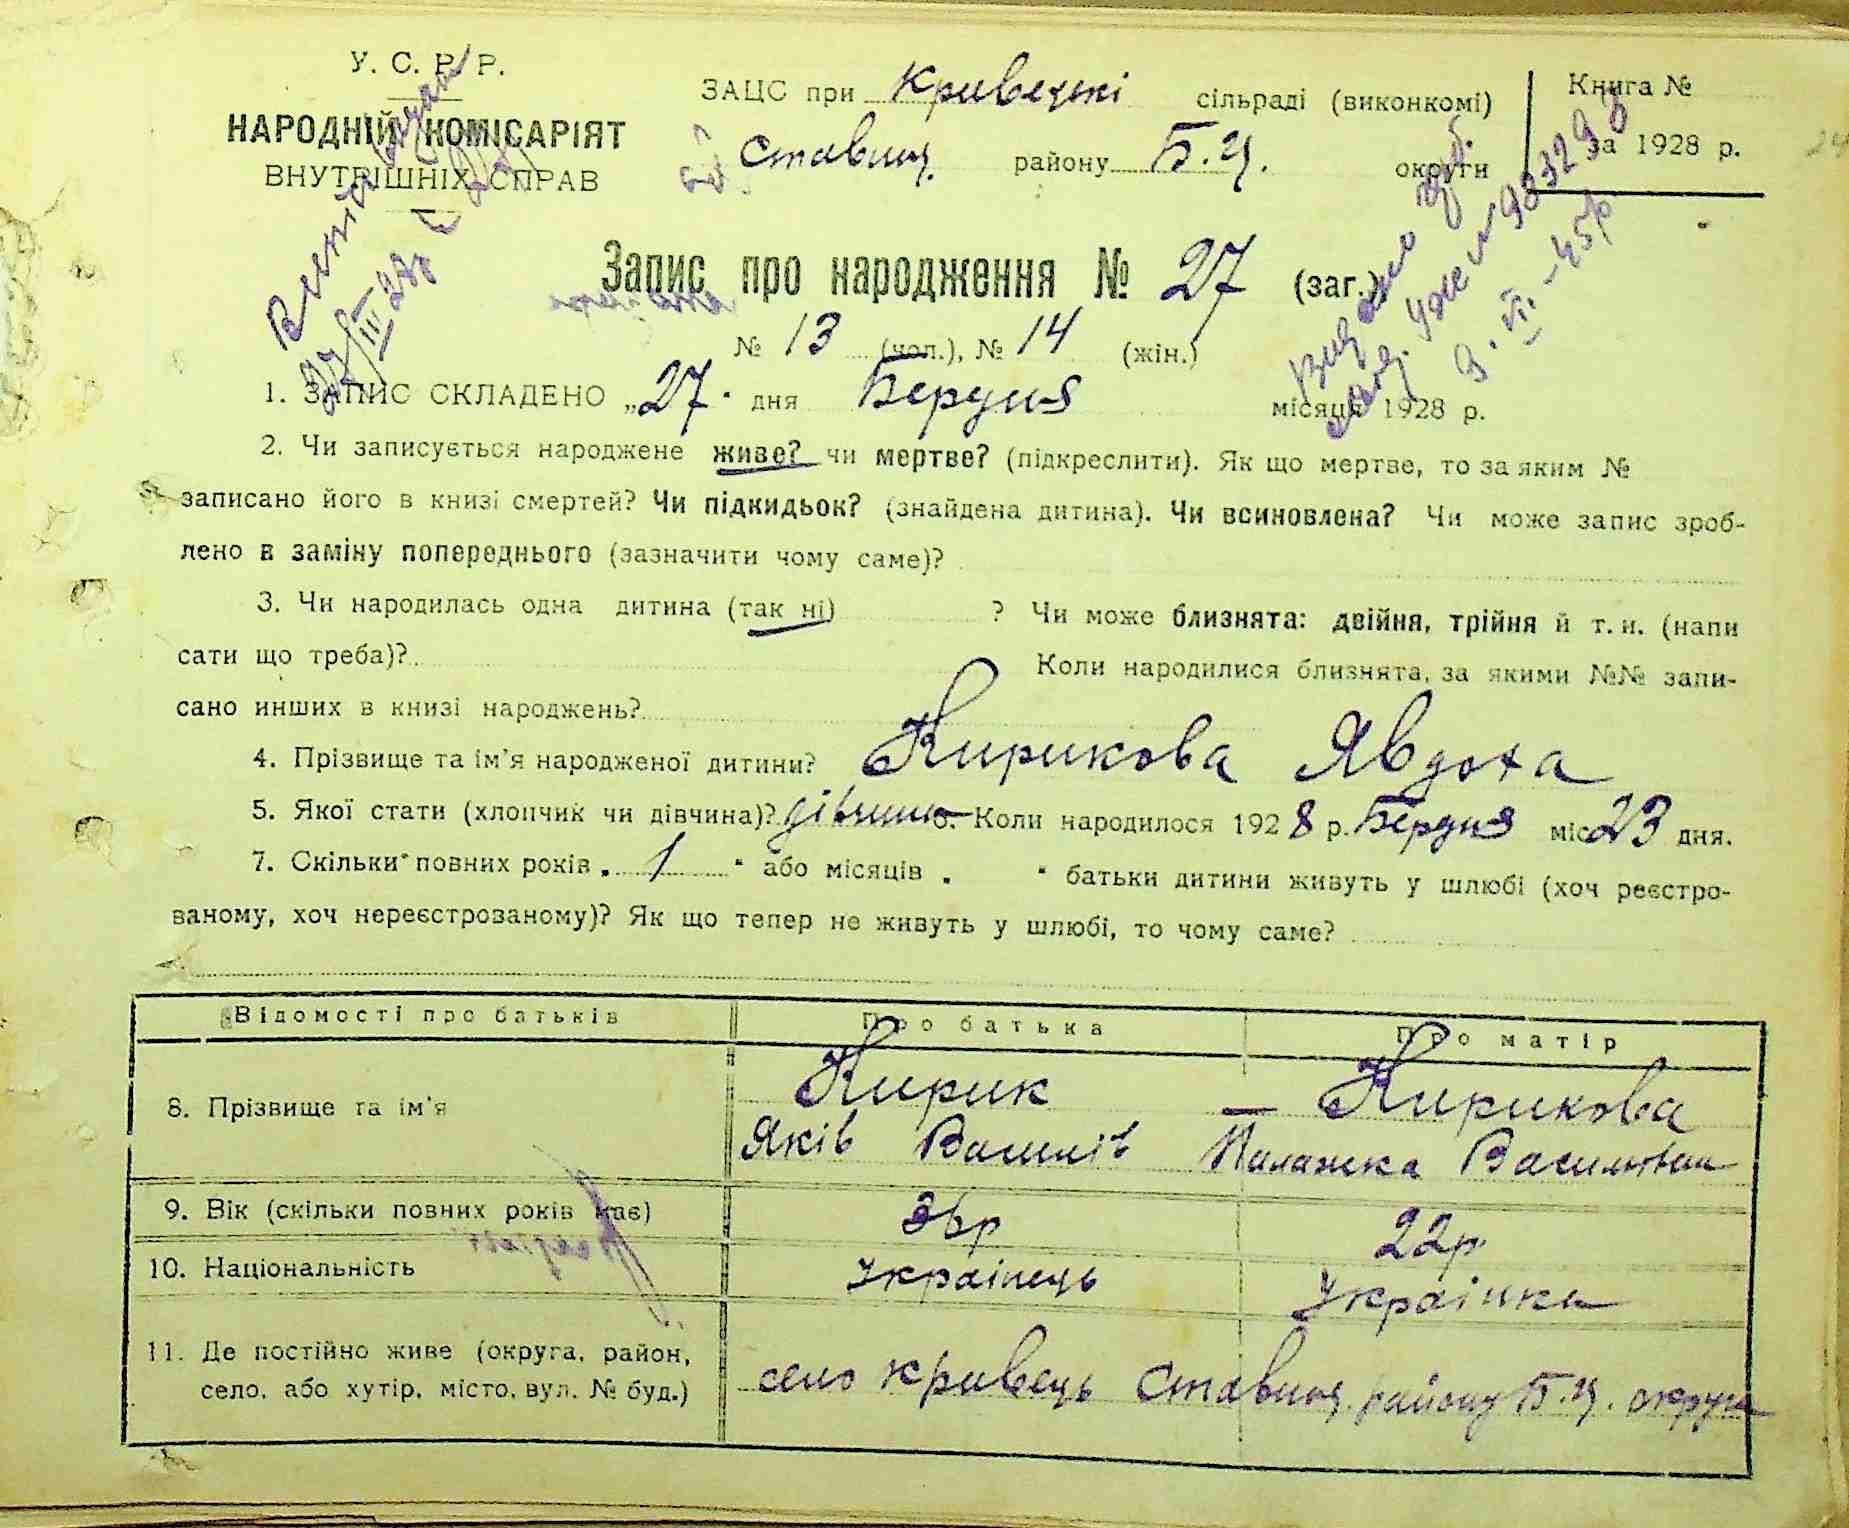 У. С. Р. Р.
НАРОДНІЙ КОМІСАРІЯТ
ВНУТРІШНІХ СПРАВ
ЗАЦС при Кривецькі сільраді (виконкомі)
Ставищ. району Б.Ц. округи
Книга №
за 1928 р.
Запис про народження № 27 (заг.)
№ 13 (чол.), № 14 (жін.)
1. ЗАПИС СКЛАДЕНО „27" дня Бердня місяця 1928 р.
2. Чи записується народжене живе? чи мертве? (підкреслити). Як що мертве, то за яким №
записано його в книзі смертей? Чи підкидьок? (знайдена дитина). Чи всиновлена? Чи може запис зроб-
лено в заміну попереднього (зазначити чому саме)?
3. Чи народилась одна дитина (так ні) ? Чи може близнята: двійня, трійня й т. и. (напи
сати що треба)? Коли народилися близнята, за якими №№ запи-
сано инших в книзі народжень?
4. Прізвище та ім'я народженої дитини? Кирикова Явдоха
5. Якої стати (хлопчик чи дівчина)? дівчина 6. Коли народилося 1928 р. Бердня міс 23 дня.
7. Скільки повних років „ 1 " або місяців „ " батьки дитини живуть у шлюбі (хоч реєстро-
ваному, хоч нереєстрозаному)? Як що тепер не живуть у шлюбі, то чому саме?
Відомості про батьків Про батька Про матір
8. Прізвище та ім'я Кирик — Кирикова
Яків Василів Палажка Василівна
9. Вік (скільки повних років має) 22р.
10. Національність Українець Українка
11. Де постійно живе (округа, район,
село, або хутір, місто, вул. № буд.) село Кривець Ставищ. району Б.Ц. округи